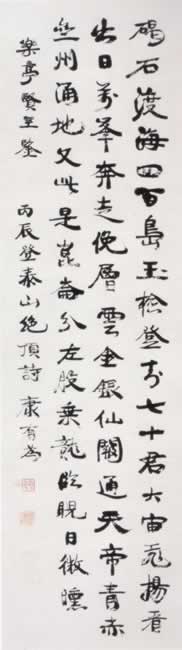 碣石渡海四百島玉檢登封七十君大宙飛揚看
出日萬峯奔走俛層雲金銀仙闕通天帝青赤
州涌地文此是崑崙分左股乘龍臨睨日微曛
樂亭賢兄鑒 丙辰登泰山絕頂詩 康有為